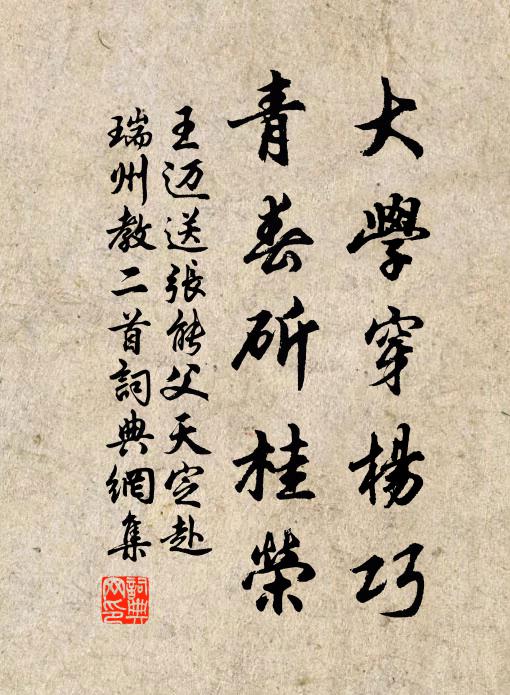 大學穿楊巧
青春斫桂榮
王迈送張能父天定赴
瑞州教二首詞典網集
詞典網印